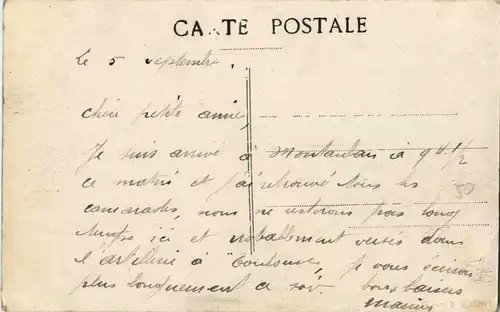 CARTE POSTALE
le 5 septembre.
chère petite amie,
Je suis arrivé à Montauban à 9 h 1/2
ce matin et j'ai retrouvé tous les
camarades, nous ne resterons pas long
temps ici et versés dans
l'artillerie à Toulouse, je vous écrirai
plus longuement ce soir. bons baisers
Marius
50